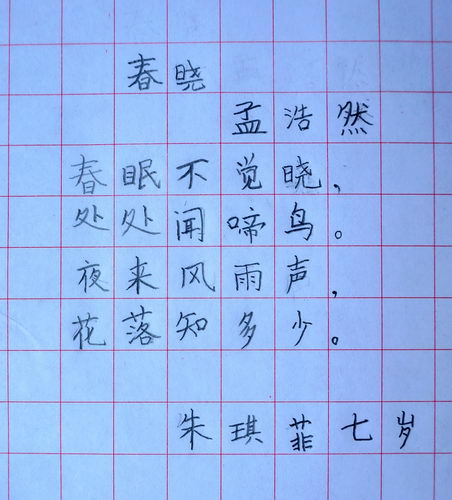 春晓
孟浩然
春眠不觉晓，
处处闻啼鸟。
夜来风雨声，
花落知多少。
朱琪菲七岁